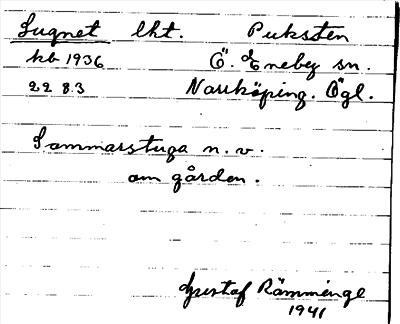 Lugnet lht. Puksten
kb 1936 Ö. Eneby sn.
22 8.3 Norrköping. Ögl.
Sommarstuga n.v.
om gården.
Gustaf Rämminge
1941